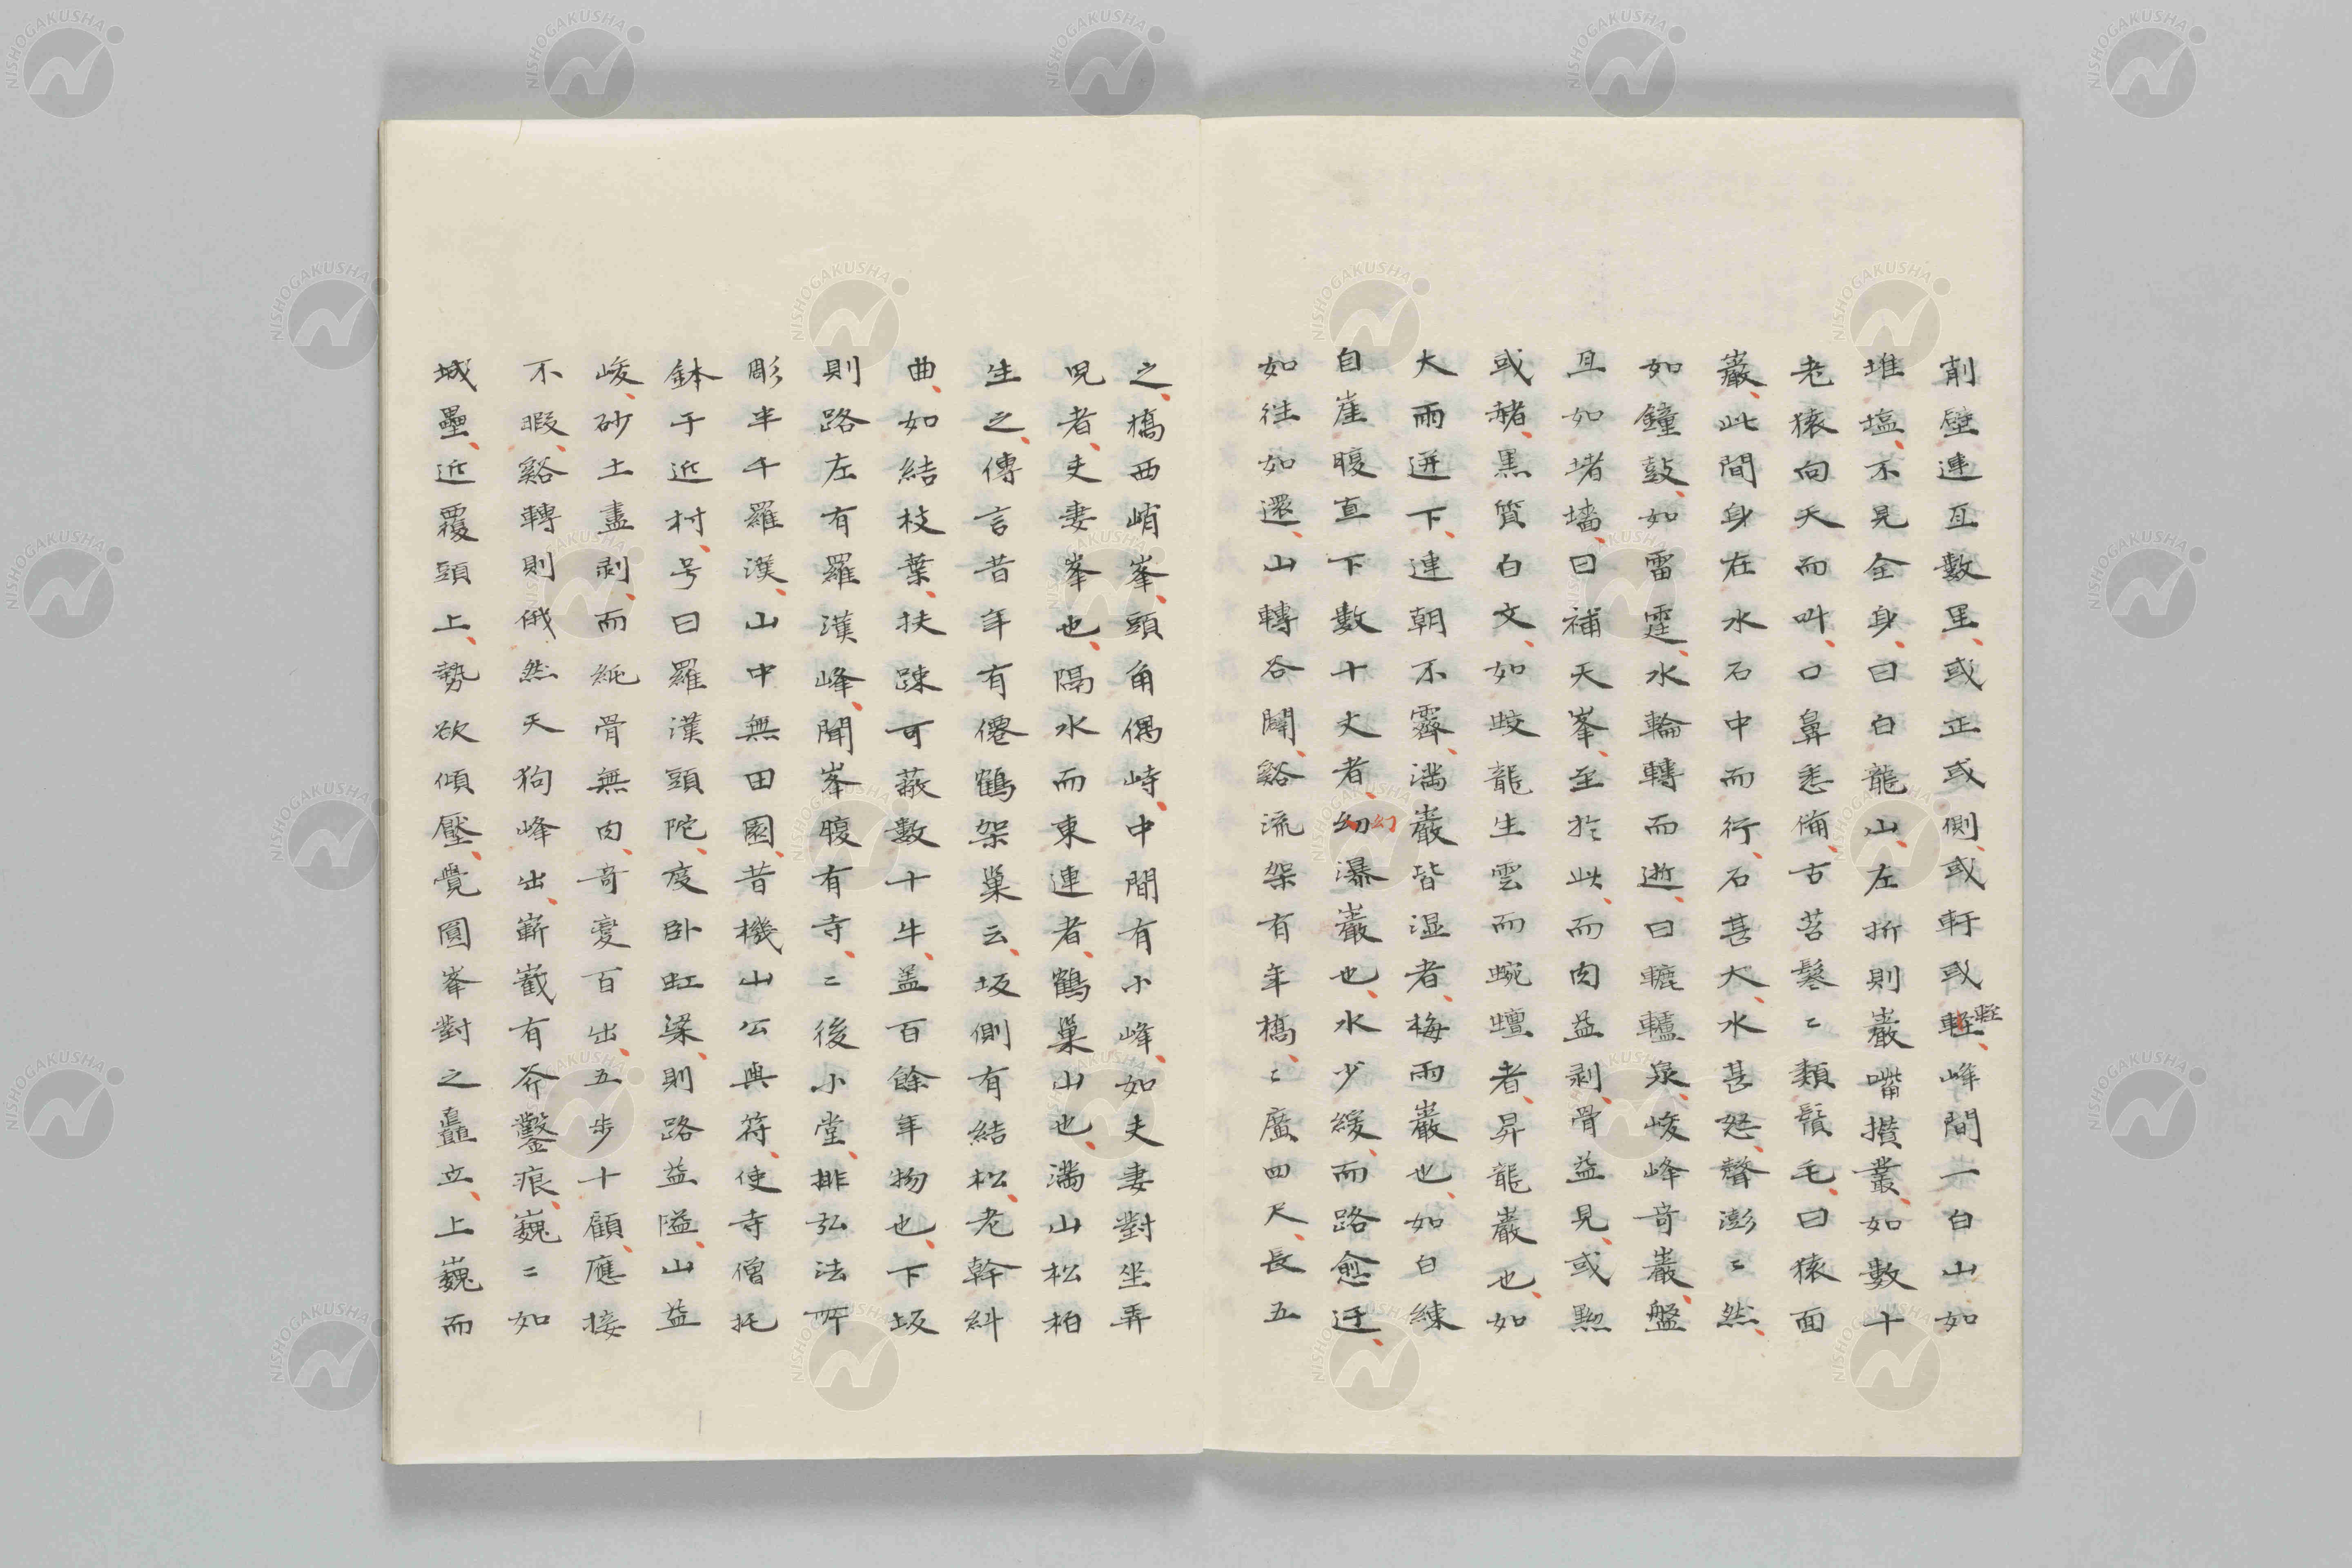 削壁連亙數里、或正或側、或軒或輊、峰間一白山如
堆塩、不見全身、曰白龍山、左折則巖嘴攅叢、如數十
老猿向天而叫、口鼻悉備、古苔鬖〻類鬚毛、曰猿面
巖、此間身在水石中而行、石甚大、水甚怒、聲澎〻然、
如鐘鼓、如雷霆、水輪轉而逝、曰轆轤泉、峻峰奇巖、盤
亙如堵墻、曰補天峯、至於此、而肉益剥、骨益見、或點
或赭、黒質白文、如蛟龍生雲而蜿蟺者、昇龍巖也、如
大雨迸下、連朝不霽、満巖皆湿者、梅雨巖也、如白練
自崖腹直下數十丈者、幻瀑巖也、水少緩、而路愈迂、
如往如還、山轉谷開、谿流架有年橋、〻廣四尺、長五
之、橋西峭峯、頭角偶峙、中間有小峰、如夫妻對坐弄
児者、夫妻峯也、隔水而東連者、鶴巣山也、満山松柏
生之、傳言昔年有僊鶴架巣云、坂側有結松、老幹糾
曲、如結枝葉、扶踈可蔽數十牛、盖百餘年物也、下坂
則路左有羅漢峰、聞峯腹有寺、〻後小堂、排弘法所
彫半千羅漢、山中無田園、昔機山公與符、使寺僧托
鉢于近村、号曰羅漢頭陀、度卧虹梁、則路益隘、山益
峻、砂土盡剥、而純骨無肉、奇変百出、五歩十顧、應接
不暇、谿轉則俄然天狗峰出、嶄嶻有斧鑿痕、巍〻如
城壘、近覆頭上、勢欲傾壓、覺圓峯對之矗立、上巍而